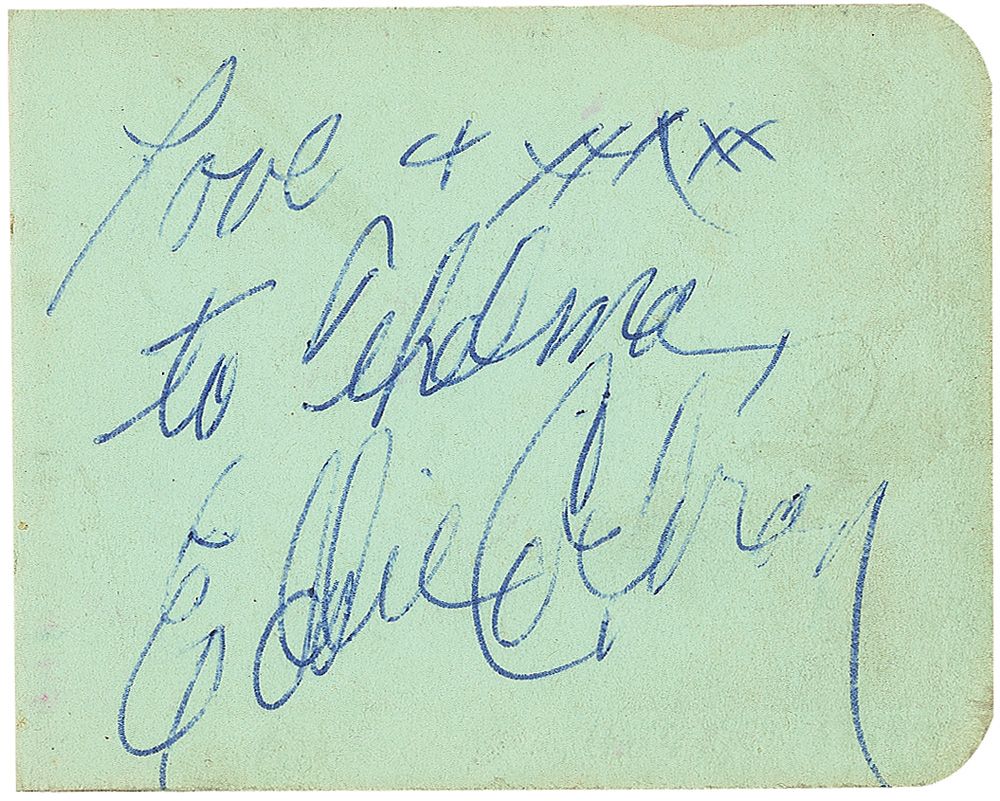 Love & xxxxx
to Thelma,
Eddie Cochran